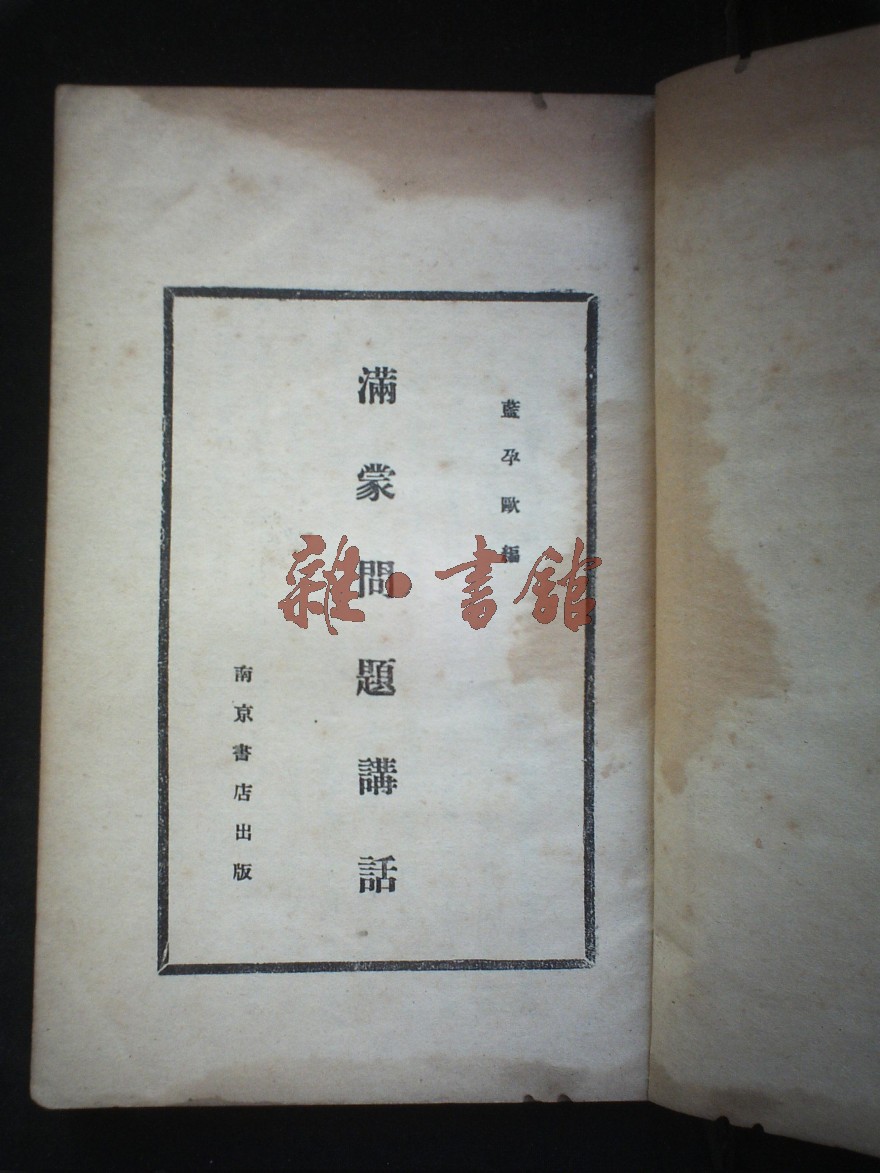 藍孕歐編
滿蒙問題講話
南京書店出版
雜·書館